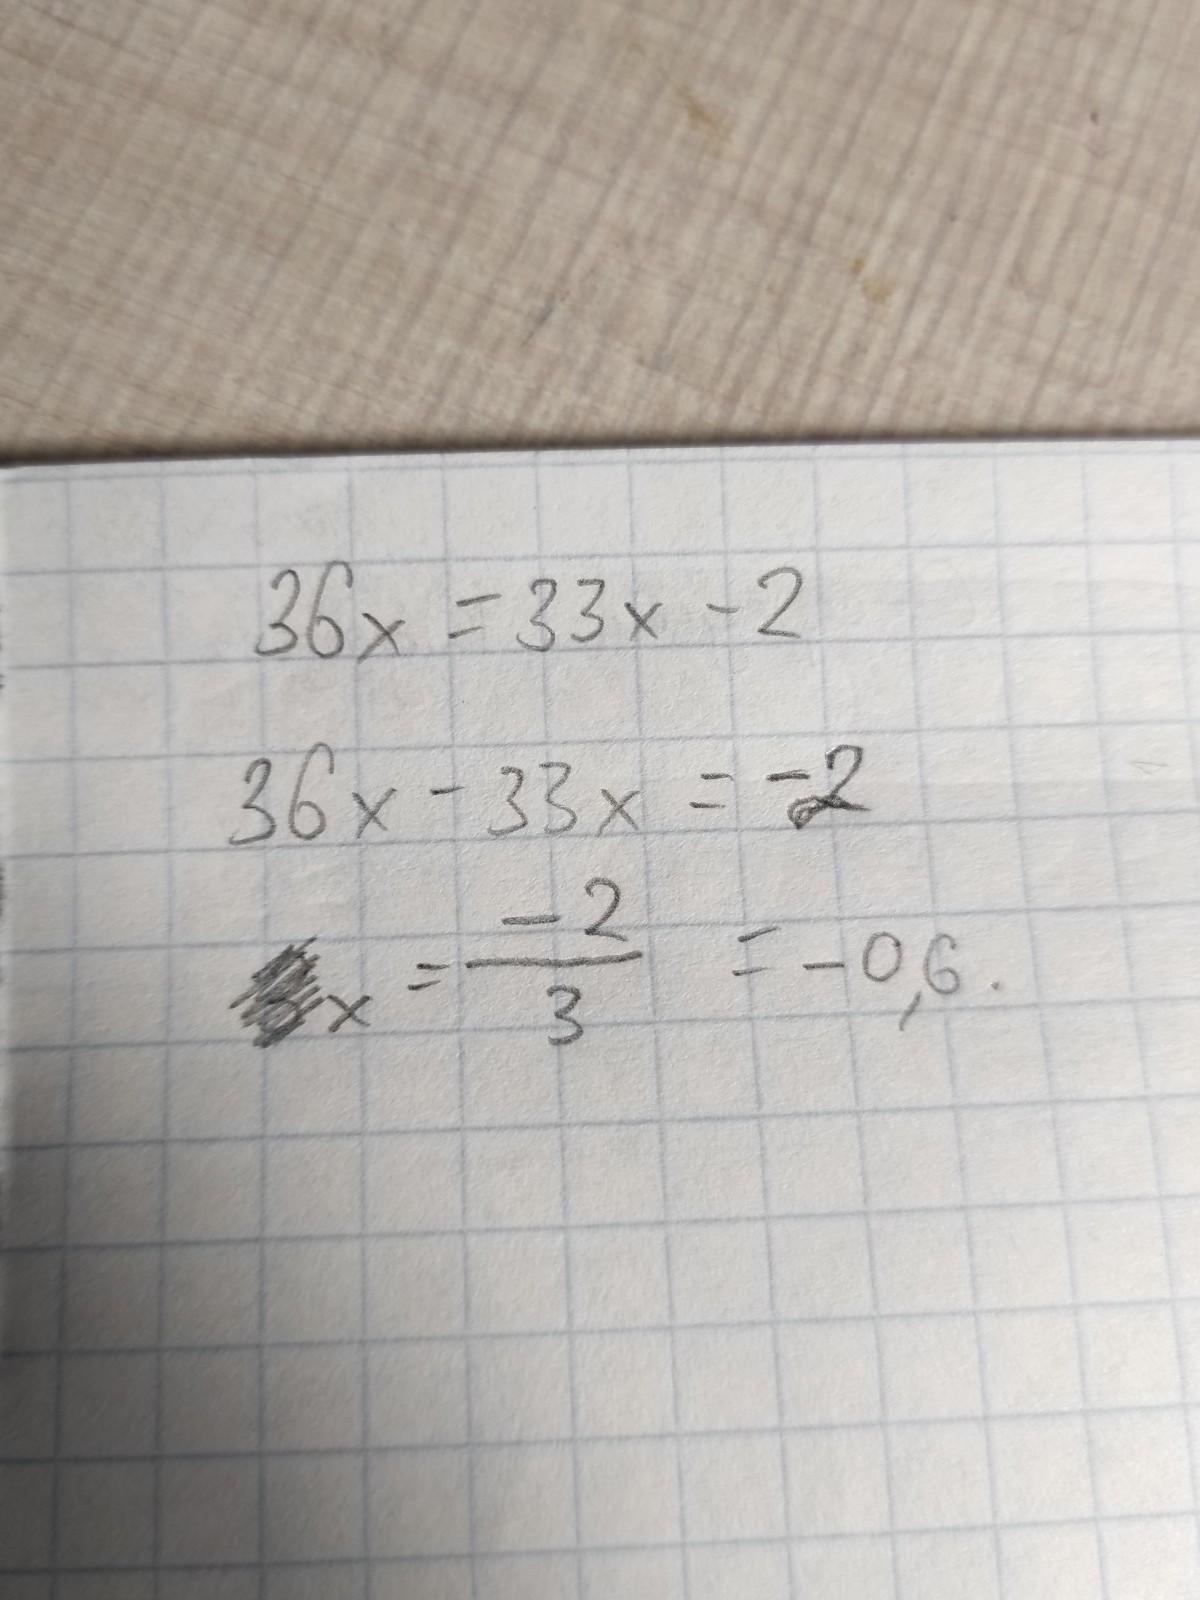 36x = 33x - 2
36x - 33x = -2
x = -2/3 = -0,6.